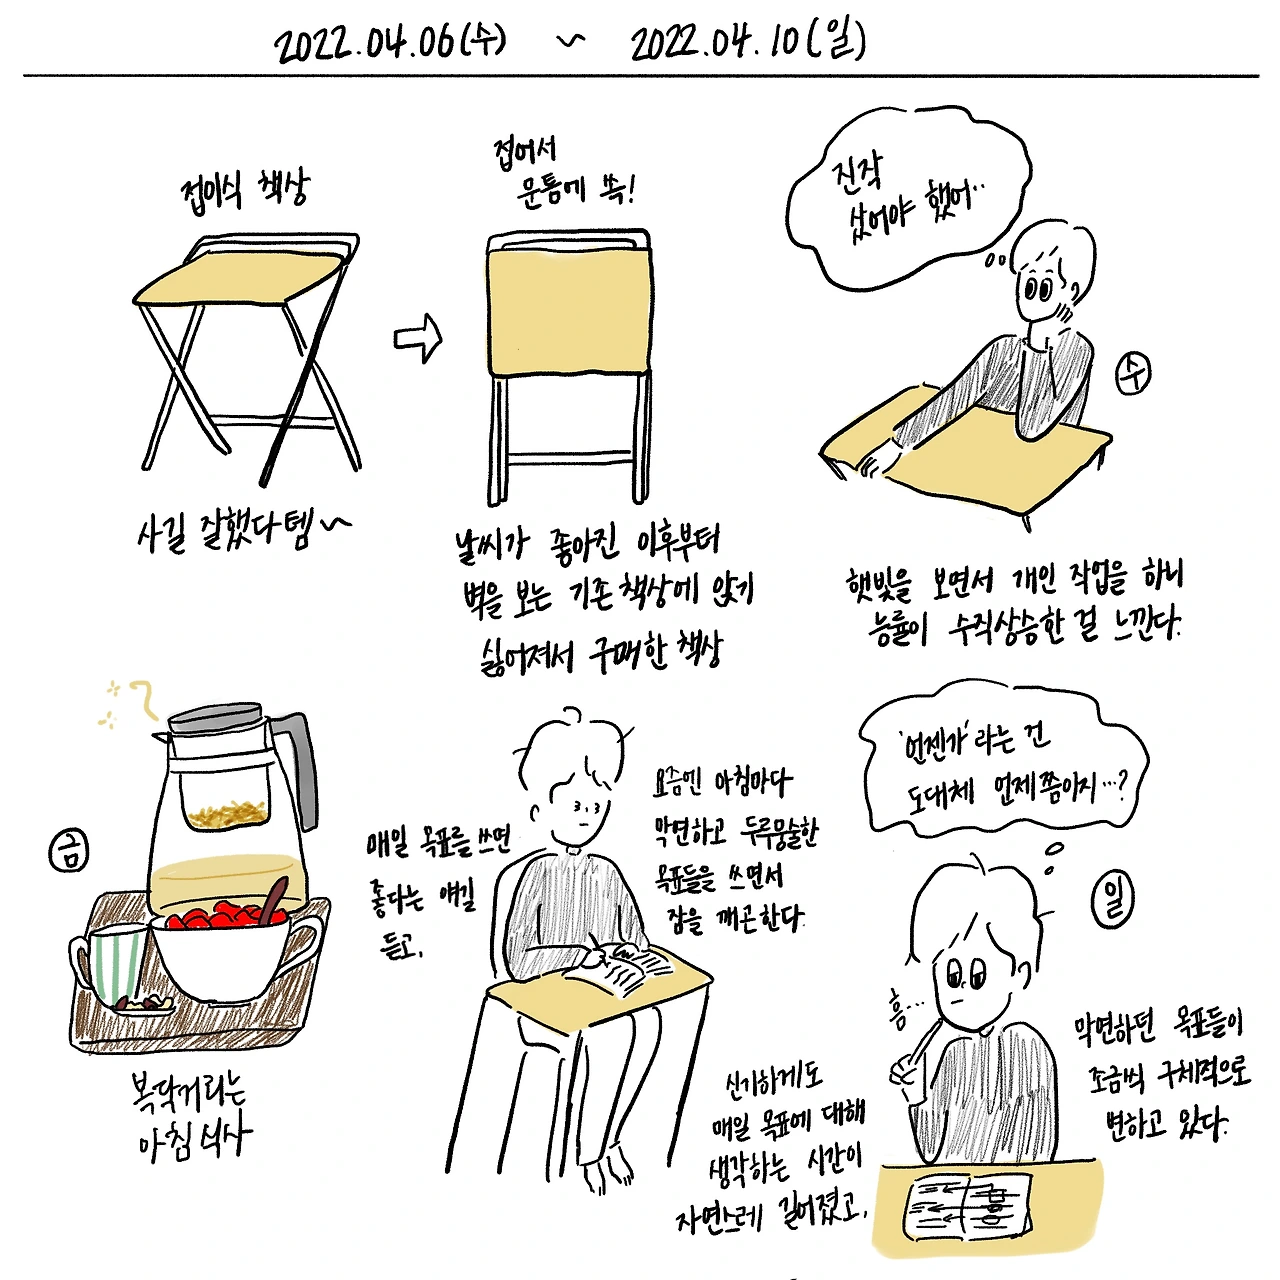 2022.04.06(수) ~ 2022.04.10(일)
접이식 책상
사길 잘했다템~
접어서
문틈에 쏙!
날씨가 좋아진 이후부터
벽을 보는 기존 책상에 앉기
싫어져서 구매한 책상
진작
샀어야 했어..
수
햇빛을 보면서 개인 작업을 하니
능률이 수직상승한 걸 느낀다.
금
복닥거리는
아침 식사
매일 목표를 쓰면
좋다는 얘길
듣고,
요즘엔 아침마다
막연하고 두루뭉술한
목표들을 쓰면서
잠을 깨곤 한다.
신기하게도
매일 목표에 대해
생각하는 시간이
자연스레 길어졌고,
'언젠가'라는 건
도대체 언제쯤이지...?
일
흠...
막연하던 목표들이
조금씩 구체적으로
변하고 있다.